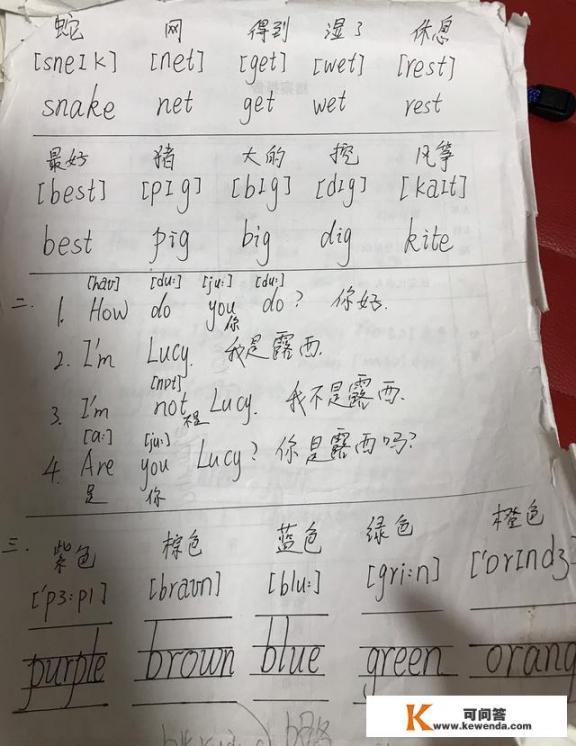 蛇 网 得到 湿了 休息
[sneIk] [net] [get] [wet] [rest]
snake net get wet rest
最好 猪 大的 挖 风筝
[best] [pIg] [bIg] [dIg] [kaIt]
best pig big dig kite
[haʊ] [du:] [ju:] [du:]
二. 1. How do you do? 你好.
你
2. I'm Lucy. 我是露西.
[nɒt]
3. I'm not Lucy. 我不是露西.
不是
[a:] [ju:]
4. Are you Lucy? 你是露西吗?
是 你
三. 紫色 棕色 蓝色 绿色 橙色
['pɜ:pl] [braʊn] [blu:] [gri:n] ['ɒrIndʒ
purple brown blue green orang
K 可问答
www.kewenda.com